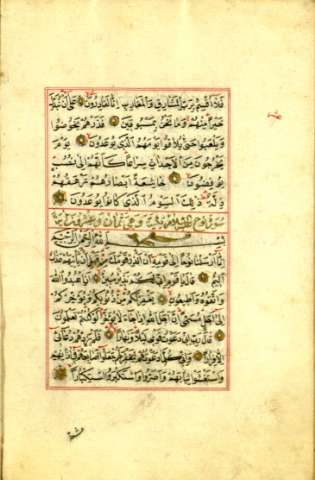 فَلَا اُقْسِمُ بِرَبِّ الْمَشَارِقِ وَالْمَغَارِبِ اِنَّا لَقَادِرُونَ عَلٰى اَنْ نُبَدِّلَ
خَيْرًا مِنْهُمْ وَمَا نَحْنُ بِمَسْبُوقِينَ فَذَرْهُمْ يَخُوضُوا
وَيَلْعَبُوا حَتّٰى يُلَاقُوا يَوْمَهُمُ الَّذِي يُوعَدُونَ يَوْمَ
يَخْرُجُونَ مِنَ الْاَجْدَاثِ سِرَاعًا كَاَنَّهُمْ اِلٰى نُصُبٍ
يُوفِضُونَ خَاشِعَةً اَبْصَارُهُمْ تَرْهَقُهُمْ
ذِلَّةٌ ذٰلِكَ الْيَوْمُ الَّذِي كَانُوا يُوعَدُونَ
سورة نوح مكية وهي ثمان وعشرون آية
بِسْمِ اللهِ الرَّحْمٰنِ الرَّحِيمِ
اِنَّا اَرْسَلْنَا نُوحًا اِلٰى قَوْمِهِ اَنْ اَنْذِرْ قَوْمَكَ مِنْ قَبْلِ اَنْ يَأْتِيَهُمْ عَذَابٌ
اَلِيمٌ قَالَ يَا قَوْمِ اِنِّي لَكُمْ نَذِيرٌ مُبِينٌ اَنِ اعْبُدُوا اللهَ
وَاتَّقُوهُ وَاَطِيعُونِ يَغْفِرْ لَكُمْ مِنْ ذُنُوبِكُمْ وَيُؤَخِّرْكُمْ
اِلٰى اَجَلٍ مُسَمًّى اِنَّ اَجَلَ اللهِ اِذَا جَاءَ لَا يُؤَخَّرُ لَوْ كُنْتُمْ تَعْلَمُونَ
قَالَ رَبِّ اِنِّي دَعَوْتُ قَوْمِي لَيْلًا وَنَهَارًا فَلَمْ يَزِدْهُمْ دُعَائِي
اِلَّا فِرَارًا وَاِنِّي كُلَّمَا دَعَوْتُهُمْ لِتَغْفِرَ لَهُمْ جَعَلُوا اَصَابِعَهُمْ فِي اٰذَانِهِمْ
وَاسْتَغْشَوْا ثِيَابَهُمْ وَاَصَرُّوا وَاسْتَكْبَرُوا اسْتِكْبَارًا